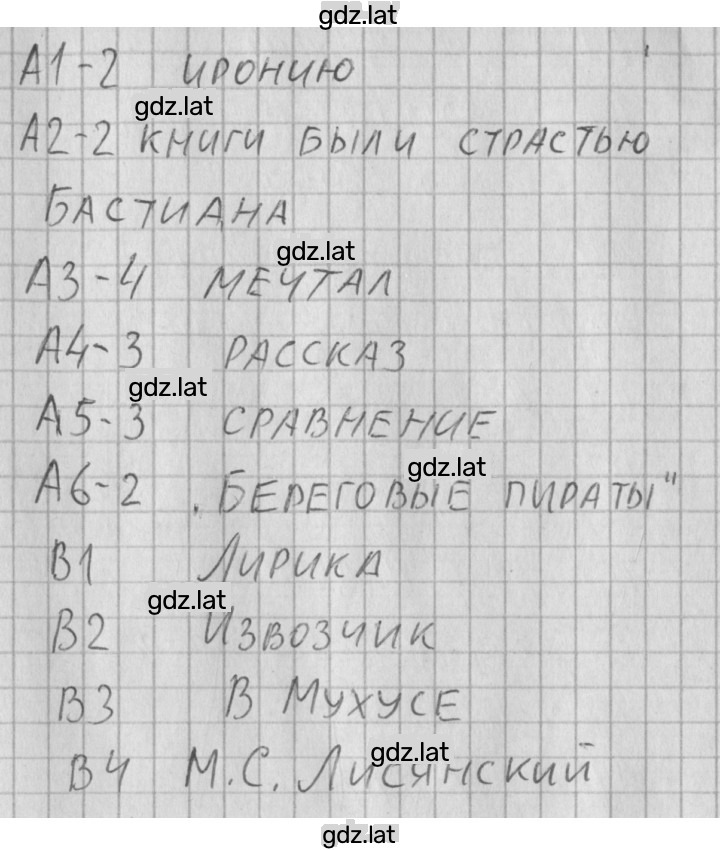 gdz.lat
А1-2 иронию
gdz.lat
А2-2 книги были страстью
Бастиана
gdz.lat
А3-4 мечтал
А4-3 рассказ
gdz.lat
А5-3 сравнение
gdz.lat
А6-2 „Береговые пираты"
В1 Лирика
gdz.lat
В2 Извозчик
В3 В Мухусе
gdz.lat
В4 М.С. Лисянский
gdz.lat